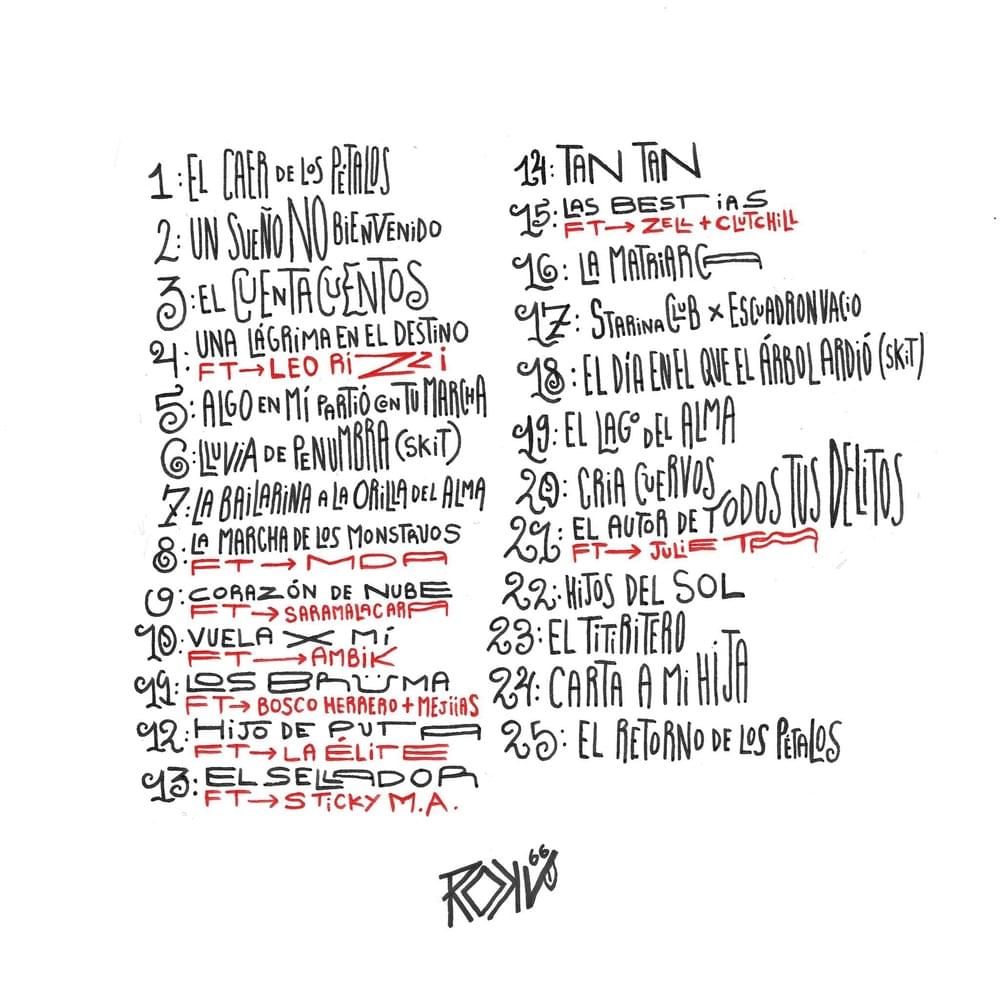 1: EL CAER DE LOS PÉTALOS
2: UN SUEÑO NO BIENVENIDO
3: EL CUENTACUENTOS
4: UNA LÁGRIMA EN EL DESTINO
FT→LEO RiZZi
5: ALGO EN MÍ PARTIÓ CON TU MARCHA
6: LLUViA DE PENUMBRA (SKiT)
7: LA BAiLARiNA A LA ORiLLA DEL ALMA
8: LA MARCHA DE LOS MONSTRUOS
FT→MDA
9: CORAZÓN DE NUBE
FT→SARAMALACARA
10: VUELA X MÍ
FT→AMBiK
11: LOS BRÜMA
FT→BOSCO HERRERO+MEJiiAS
12: HiJO DE PUTA
FT→LA ÉLiTE
13: EL SELLADOR
FT→STiCKY M.A.
14: TAN TAN
15: LAS BESTiAS
FT→ZELL+CLUTCHiLL
16: LA MATRiARCA
17: STARiNA CLUB X ESCUADRON VACiO
18: EL DÍA EN EL QUE EL ÁRBOL ARDIÓ (SKiT)
19: EL LAGO DEL ALMA
20: CRiA CUERVOS
21: EL AUTOR DE TODOS TUS DELiTOS
FT→JULiETA
22: HiJOS DEL SOL
23: EL TiTiRiTERO
24: CARTA A Mi HiJA
25: EL RETORNO DE LOS PÉTALOS